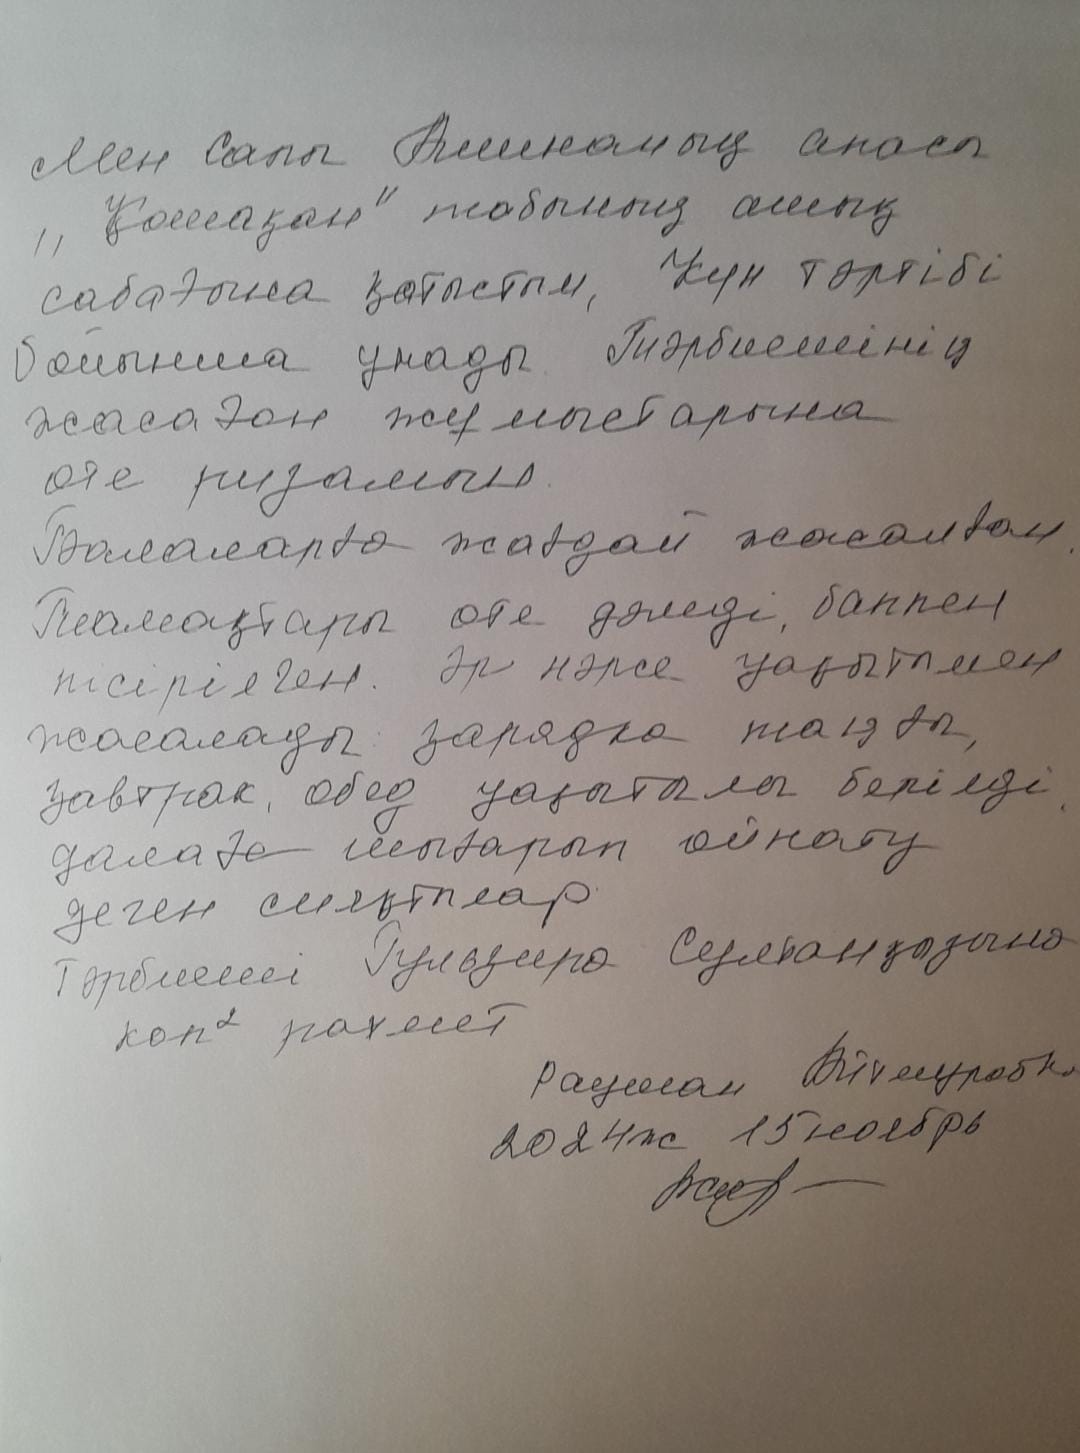 Мен Сапы Аминаның анасы
„Қошақан" тобының ашық
сабағына қатыстым, Күн тәртібі
бойынша ұнады. Тәрбиешінің
жасаған жұмыстарына
өте ризамын.
Балаларға жағдай жасалған.
Тамақтары өте дәмді, баппен
пісірілген. Әр нәрсе уақытымен
жасалады: зарядка таңғы,
завтрак, обед уақытылы берілді,
далаға шығарып ойнату
деген сияқтылар
Тәрбиеші Гульзира Султанқызына
көп² рахмет
Раушан
2024ж 15 ноябрь